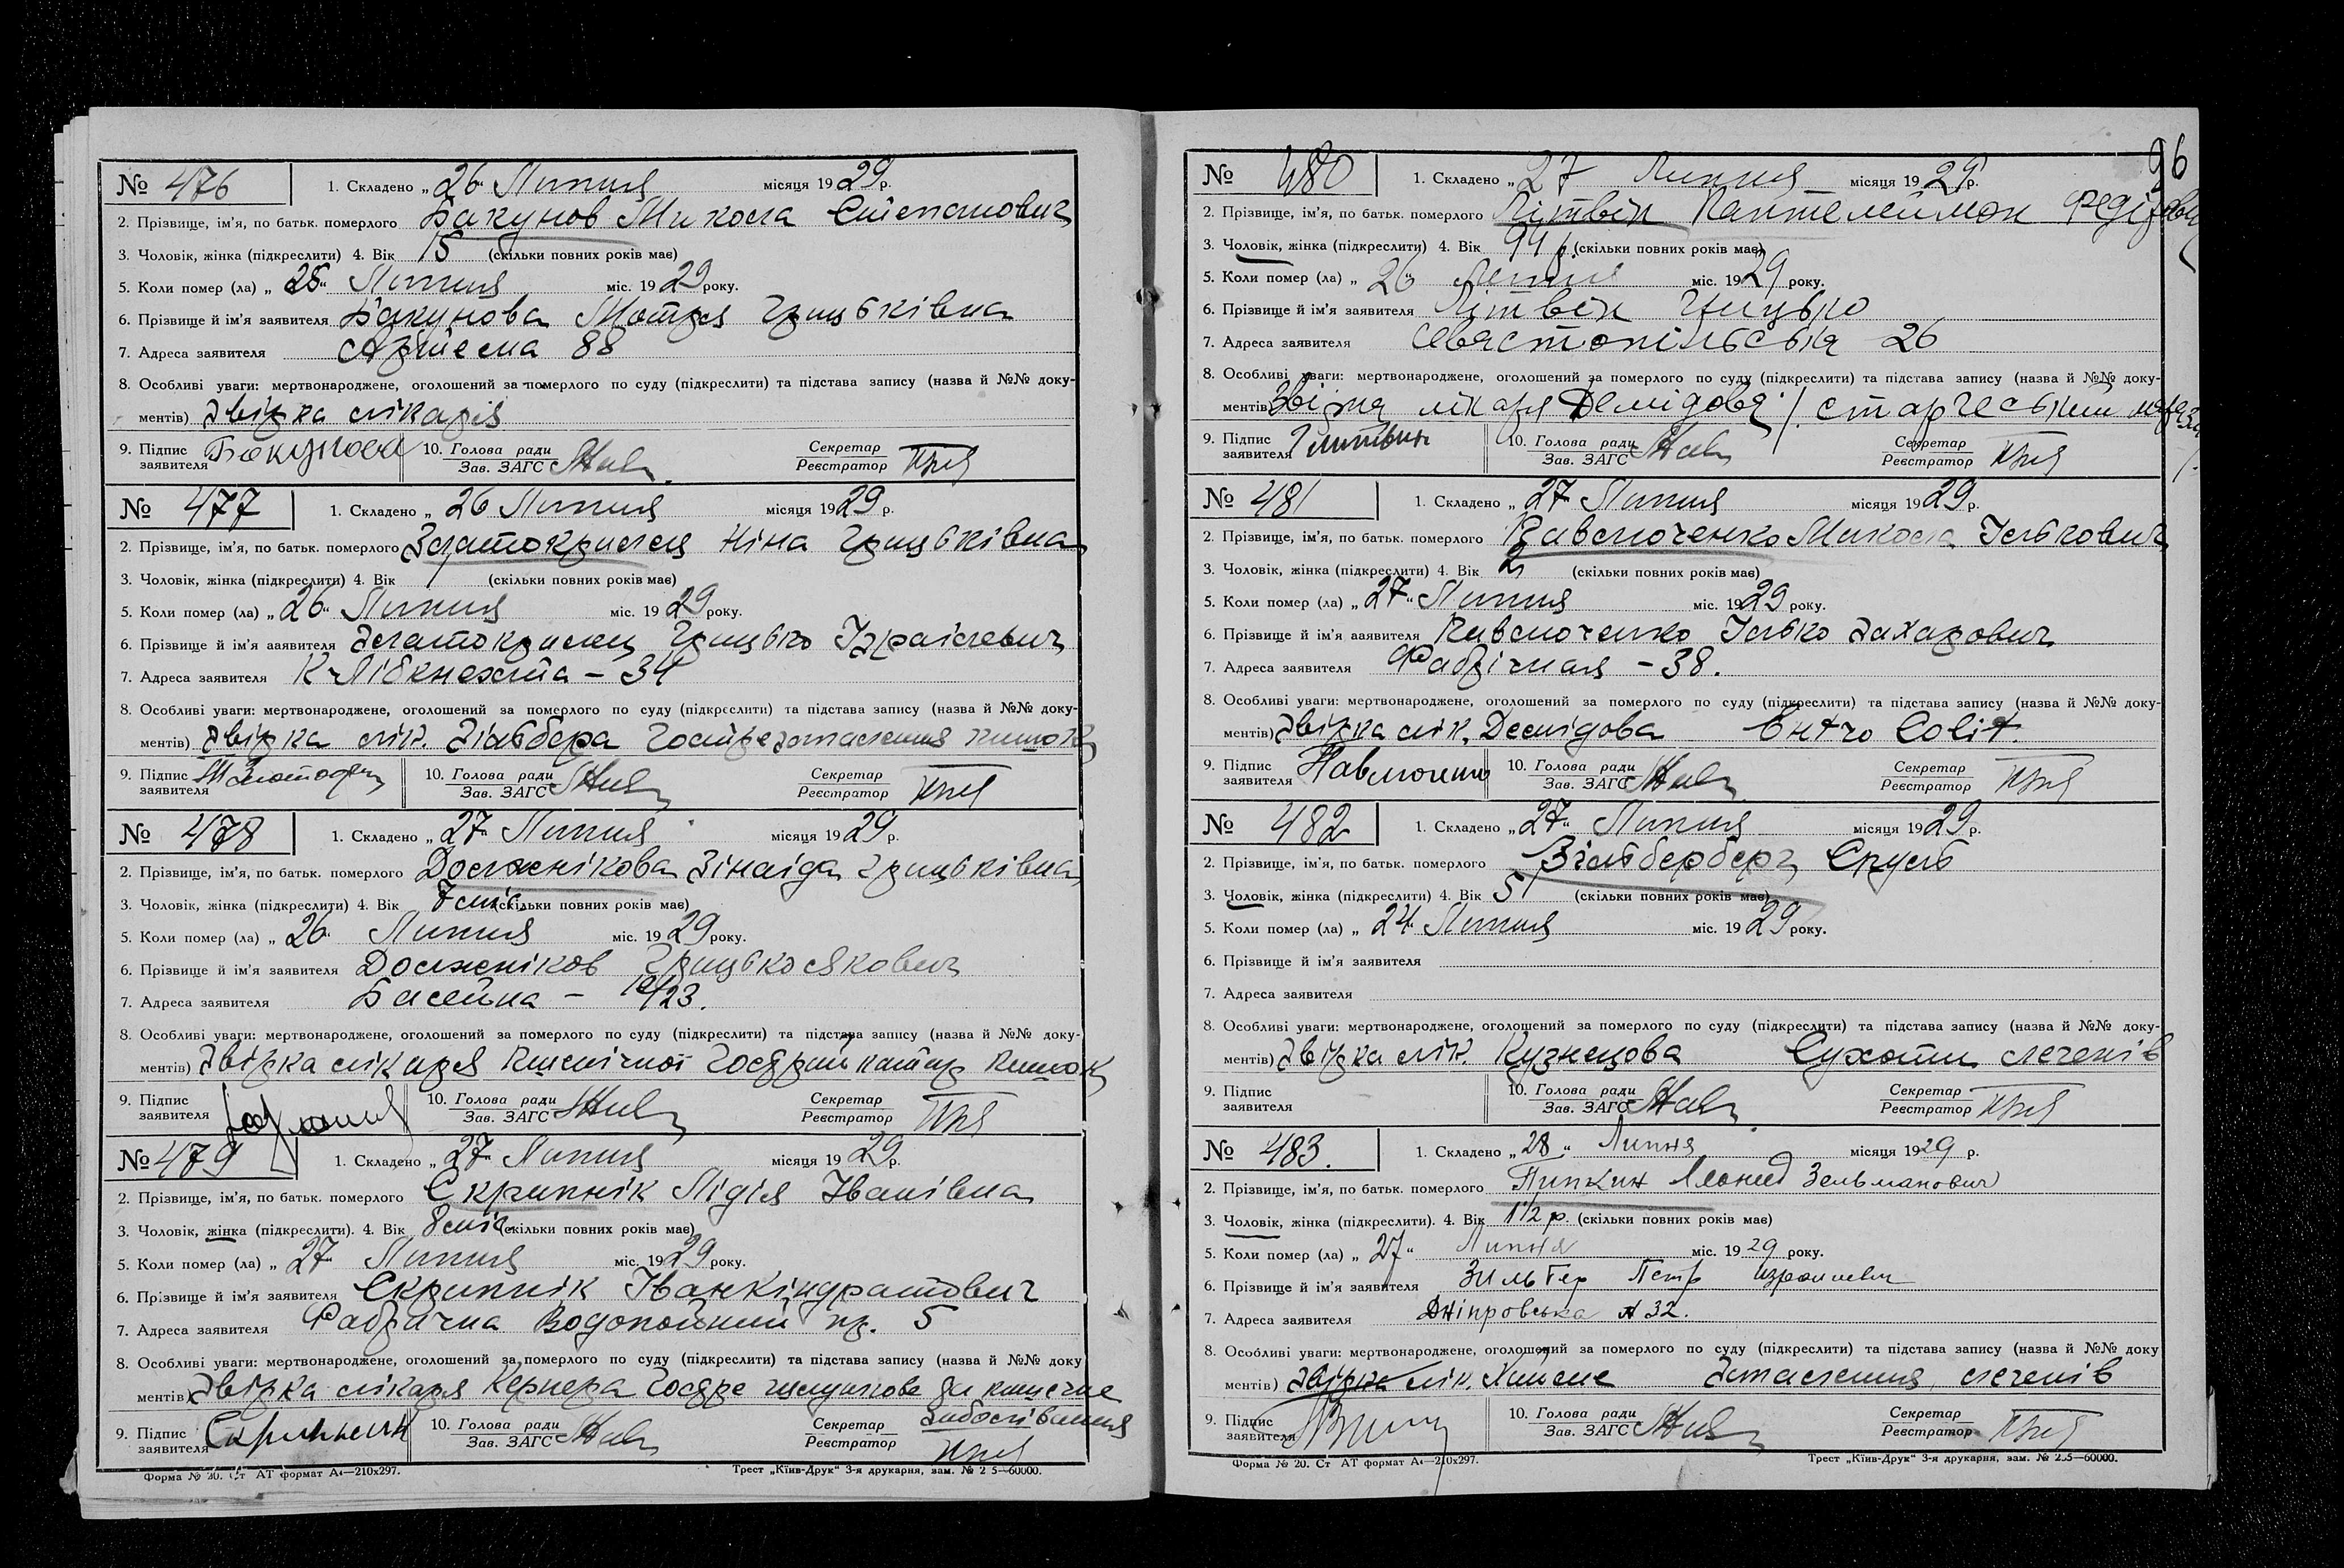 № 476 1. Складено „ 26 “ Липня місяця 1929 р.
2. Прізвище, ім’я, по батьк. померлого Бакунов Микола Степанович
3. Чоловік, жінка (підкреслити) 4. Вік 15 (скільки повних років має)
5. Коли помер (ла) „ 25 “ Липня міс. 1929 року.
6. Прізвище й ім’я заявителя Бакунова Мотря Грицьківна
7. Адреса заявителя Артема 88
8. Особливі уваги: мертвонароджене, оголошений за померлого по суду (підкреслити) та підстава запису (назва й №№ доку-
ментів) Звірка лікаря
9. Підпис заявителя Бакунова 10. Голова ради Зав. ЗАГС Секретар Реєстратор
№ 477 1. Складено „ 26 Липня місяця 1929 р.
2. Прізвище, ім’я, по батьк. померлого Златокрилец Ніна Грицьківна
3. Чоловік, жінка (підкреслити) 4. Вік 1 (скільки повних років має)
5. Коли помер (ла) „ 26 “ Липня міс. 1929 року.
6. Прізвище й ім’я заявителя Златокрилец Грицько Ізраілевич
7. Адреса заявителя К Лібкнехта – 34
8. Особливі уваги: мертвонароджене, оголошений за померлого по суду (підкреслити) та підстава запису (назва й №№ доку-
ментів) Звірка лік. Гостре запалення кишок
9. Підпис заявителя 10. Голова ради Зав. ЗАГС Секретар Реєстратор
№ 478 1. Складено „ 27 “ Липня місяця 1929 р.
2. Прізвище, ім’я, по батьк. померлого Должнікова Зінаіда Грицьківна
3. Чоловік, жінка (підкреслити) 4. Вік 7 міс. (скільки повних років має)
5. Коли помер (ла) „ 26 “ Липня міс. 1929 року.
6. Прізвище й ім’я заявителя Должніков Грицько Якович
7. Адреса заявителя Басейна –
8. Особливі уваги: мертвонароджене, оголошений за померлого по суду (підкреслити) та підстава запису (назва й №№ доку-
ментів) Звірка лікаря кишок
9. Підпис заявителя 10. Голова ради Зав. ЗАГС Секретар Реєстратор
№ 479 1. Складено „ 27 “ Липня місяця 1929 р.
2. Прізвище, ім’я, по батьк. померлого Скрипнік Лідія Іванівна
3. Чоловік, жінка (підкреслити). 4. Вік 8 міс. (скільки повних років має)
5. Коли помер (ла) „ 27 “ Липня міс. 1929 року.
6. Прізвище й ім’я заявителя Скрипнік Іван Кіндратович
7. Адреса заявителя Фабрична Водопойний пр. 5
8. Особливі уваги: мертвонароджене, оголошений за померлого по суду (підкреслити) та підстава запису (назва й №№ доку
ментів) Звірка лікаря Кернера Гостре шлункове да кишечне
захворювання
9. Підпис заявителя 10. Голова ради Зав. ЗАГС Секретар Реєстратор
Форма № 20. Ст АТ формат А4—210х297. Трест „Київ-Друк“ 3-я друкарня, зам. № 2 5—60000.
96
№ 480 1. Складено „ 27 Липня місяця 1929 р.
2. Прізвище, ім’я, по батьк. померлого Літвін Пантелеймон Федірович
3. Чоловік, жінка (підкреслити) 4. Вік 94 р. (скільки повних років має)
5. Коли помер (ла) „ 26 “ Липня міс. 1929 року.
6. Прізвище й ім’я заявителя Літвін Грицько
7. Адреса заявителя Севастопільська 26
8. Особливі уваги: мертвонароджене, оголошений за померлого по суду (підкреслити) та підстава запису (назва й №№ доку-
ментів) Звірка лікаря Демідова /.
9. Підпис заявителя 10. Голова ради Зав. ЗАГС Секретар Реєстратор
№ 481 1. Складено „ 27 “ Липня місяця 1929 р.
2. Прізвище, ім’я, по батьк. померлого Павлюченко Микола Ількович
3. Чоловік, жінка (підкреслити) 4. Вік 2 (скільки повних років має)
5. Коли помер (ла) „ 27 “ Липня міс. 1929 року.
6. Прізвище й ім’я заявителя Павлюченко Ілько Захарович
7. Адреса заявителя Фабрічная – 38.
8. Особливі уваги: мертвонароджене, оголошений за померлого по суду (підкреслити) та підстава запису (назва й №№ доку-
ментів) Звірка лік. Демідова Colit.
9. Підпис заявителя 10. Голова ради Зав. ЗАГС Секретар Реєстратор
№ 482 1. Складено „ 27 “ Липня місяця 1929 р.
2. Прізвище, ім’я, по батьк. померлого Зільберберг Сруль
3. Чоловік, жінка (підкреслити) 4. Вік 51 (скільки повних років має)
5. Коли помер (ла) „ 24 “ Липня міс. 1929 року.
6. Прізвище й ім’я заявителя
7. Адреса заявителя
8. Особливі уваги: мертвонароджене, оголошений за померлого по суду (підкреслити) та підстава запису (назва й №№ доку-
ментів) Звірка лік. Кузнецова Сухоти легенів
9. Підпис заявителя 10. Голова ради Зав. ЗАГС Секретар Реєстратор
№ 483. 1. Складено „ 28 “ Липня місяця 1929 р.
2. Прізвище, ім’я, по батьк. померлого Пипкин Леонид Зельманович
3. Чоловік, жінка (підкреслити). 4. Вік 1 1/2 р. (скільки повних років має)
5. Коли помер (ла) „ 27 “ Липня міс. 1929 року.
6. Прізвище й ім’я заявителя Петр Израилевич
7. Адреса заявителя Дніпровська № 32.
8. Особливі уваги: мертвонароджене, оголошений за померлого по суду (підкреслити) та підстава запису (назва й №№ доку
ментів) Звірка лік. Запалення легенів
9. Підпис заявителя 10. Голова ради Зав. ЗАГС Секретар Реєстратор
Форма № 20. Ст АТ формат А4—210х297. Трест „Київ-Друк“ 3-я друкарня, зам. № 2.5—60000.